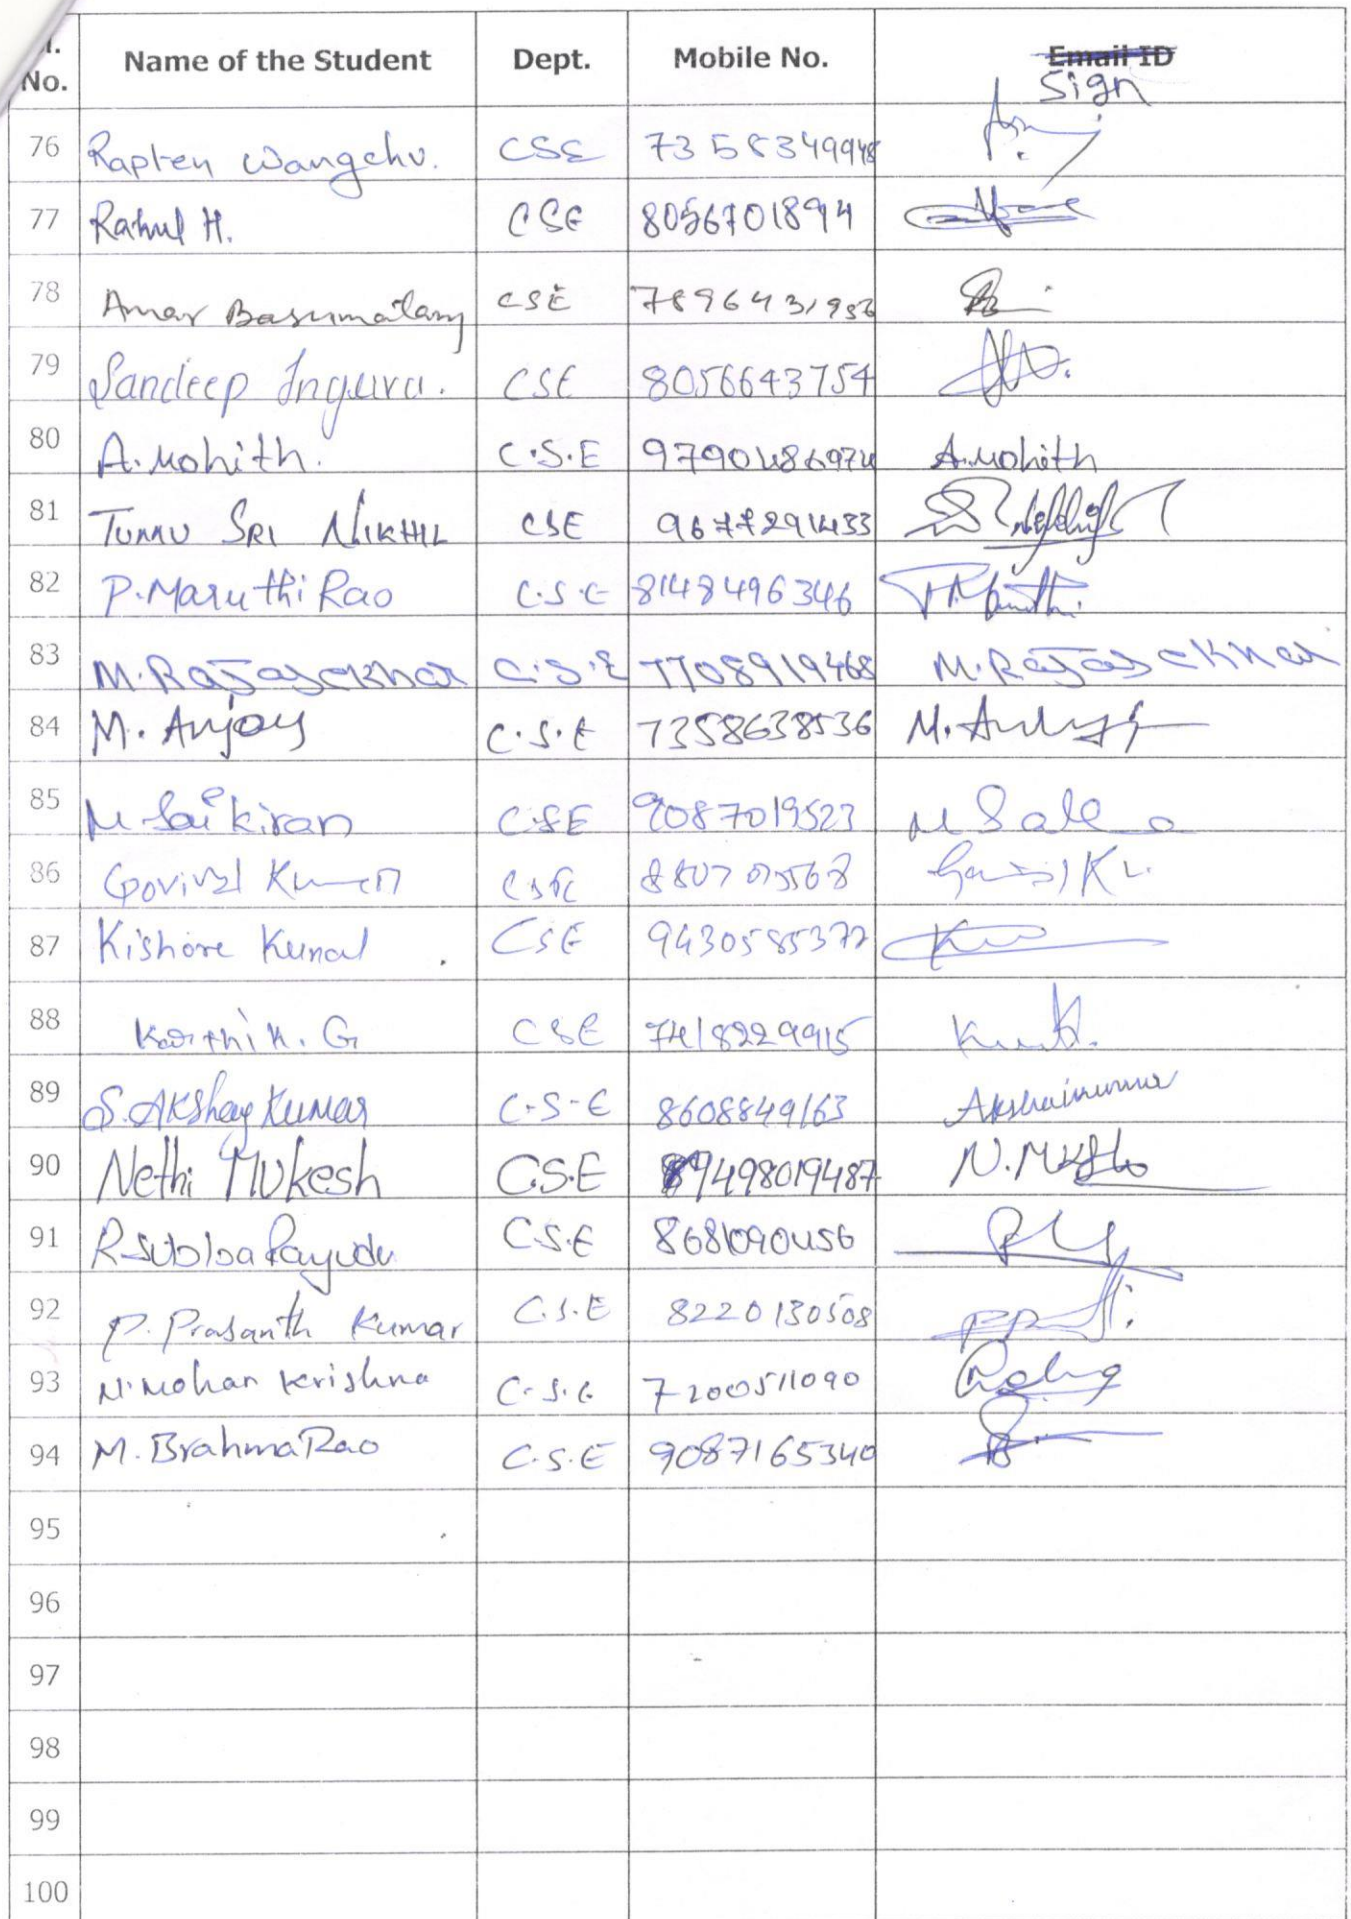 l. No. Name of the Student Dept. Mobile No. Email ID
Sign
76 Rapten Wangchu. CSE 7358349948
77 Rahul H. CSE 8056701894
78 Amar Basumatary CSE
79 Sandeep Inguva. CSE 8056643754
80 A. Mohith. C.S.E A. Mohith
81 TUMMU SRI NIKHIL CSE 9677291433
82 P. Maruthi Rao C.S.E 8148496346
83 M. Rajasekhar C.S.E 7708919468 M. Rajasekhar
84 M. Anjay C.S.E 7358638536
85 M Sai kiran C.S.E 9087019523
86 Govind Kumar CSE
87 Kishore Kunal CSE 9430585377
88 Karthik. G CSE 7418229915
89 S. Akshay Kumar C-S-E 8608849163
90 Nethi Mukesh C.S.E 9498019487
91 R Subba Rayudu C.S.E 8681090456
92 P. Prasanth Kumar C.S.E 8220130508
93 N. Mohan Krishna C.S.E 7200511090
94 M. Brahma Rao C.S.E 9087165340
95
96
97
98
99
100